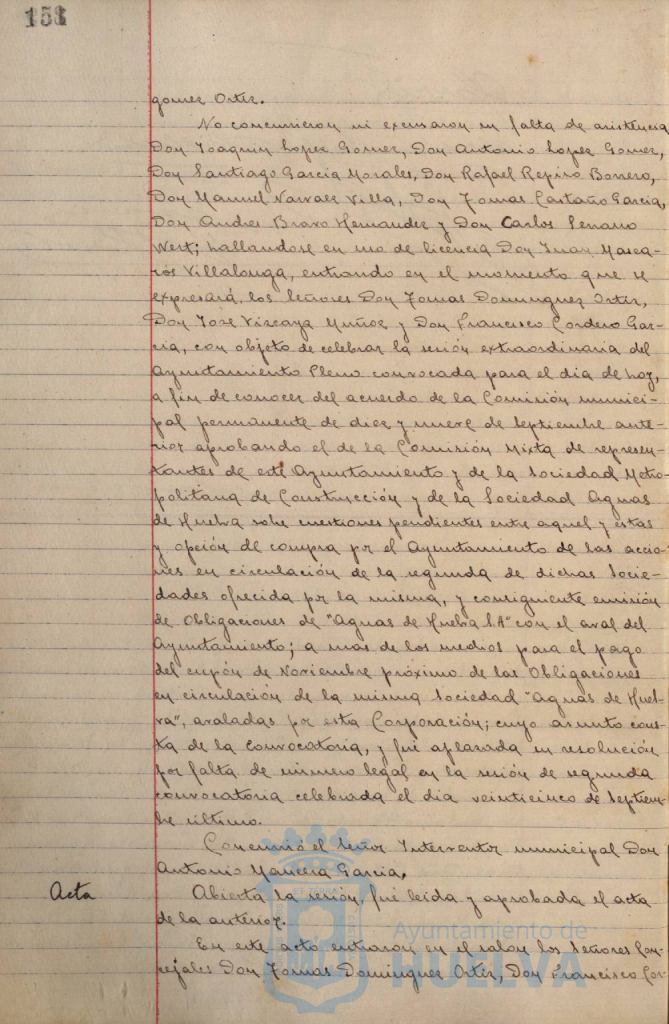 151
gomez Ortiz.
No concurrieron ni excusaron su falta de asistencia
Don Joaquin Lopez Gomez, Don Antonio Lopez Gomez,
Don Santiago Garcia Morales, Don Rafael Repiso Borrero,
Don Manuel Narvaez Villa, Don Tomas Castaño Garcia,
Don Andres Bravo Hernandez y Don Carlos Serrano
West; hallandose en uso de licencia Don Juan Masca-
rós Villalonga, entrando en el momento que se
expresará, los Señores Don Tomas Dominguez Ortiz,
Don José Vizcaya Muñoz y Don Francisco Cordero Gar-
cia, con objeto de celebrar la sesión extraordinaria del
Ayuntamiento Pleno convocada para el dia de hoy,
a fin de conocer del acuerdo de la Comisión munici-
pal permanente de diez y nueve de Septiembre ante-
rior aprobando el de la Comisión Mixta de represen-
tantes de este Ayuntamiento y de la Sociedad Metro-
politana de Construcción y de la Sociedad Aguas
de Huelva sobre cuestiones pendientes entre aquel y estas
y opción de compra por el Ayuntamiento de las accio-
nes en circulación de la segunda de dichas Socie-
dades ofrecida por la misma, y consiguiente emisión
de Obligaciones de "Aguas de Huelva S.A" con el aval del
Ayuntamiento; a mas de los medios para el pago
del cupón de Noviembre próximo de las Obligaciones
en circulación de la misma Sociedad "Aguas de Huel-
va", avaladas por esta Corporación; cuyo asunto cons-
ta de la convocatoria, y fué aplazada su resolución
por falta de número legal en la sesión de segunda
convocatoria celebrada el dia veinticinco de Septiem-
bre último.
Concurrió el Señor Interventor municipal Don
Antonio Mancera Garcia.
Acta
Abierta la sesión, fué leida y aprobada el acta
de la anterior.
En este acto entraron en el salon los Señores Con-
cejales Don Tomas Dominguez Ortiz, Don Francisco Cor-
Ayuntamiento de
HUELVA